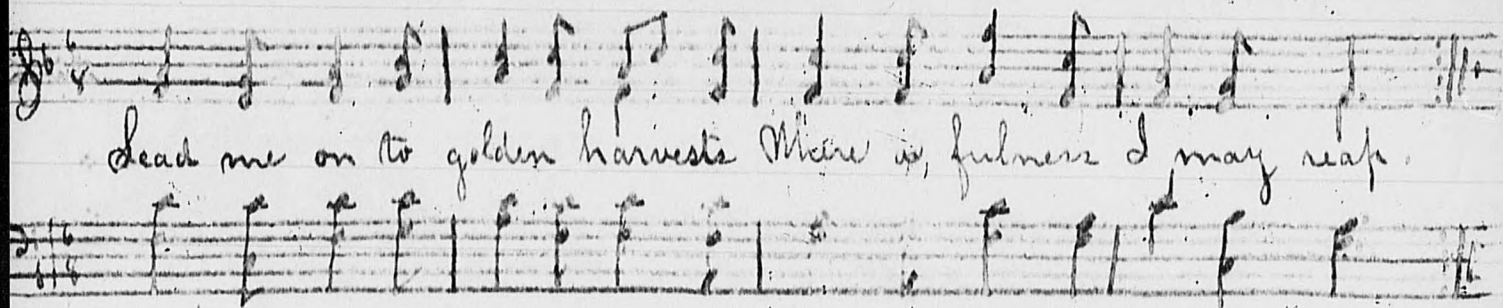 Lead me on to golden harvests Where in fulness I may reap.